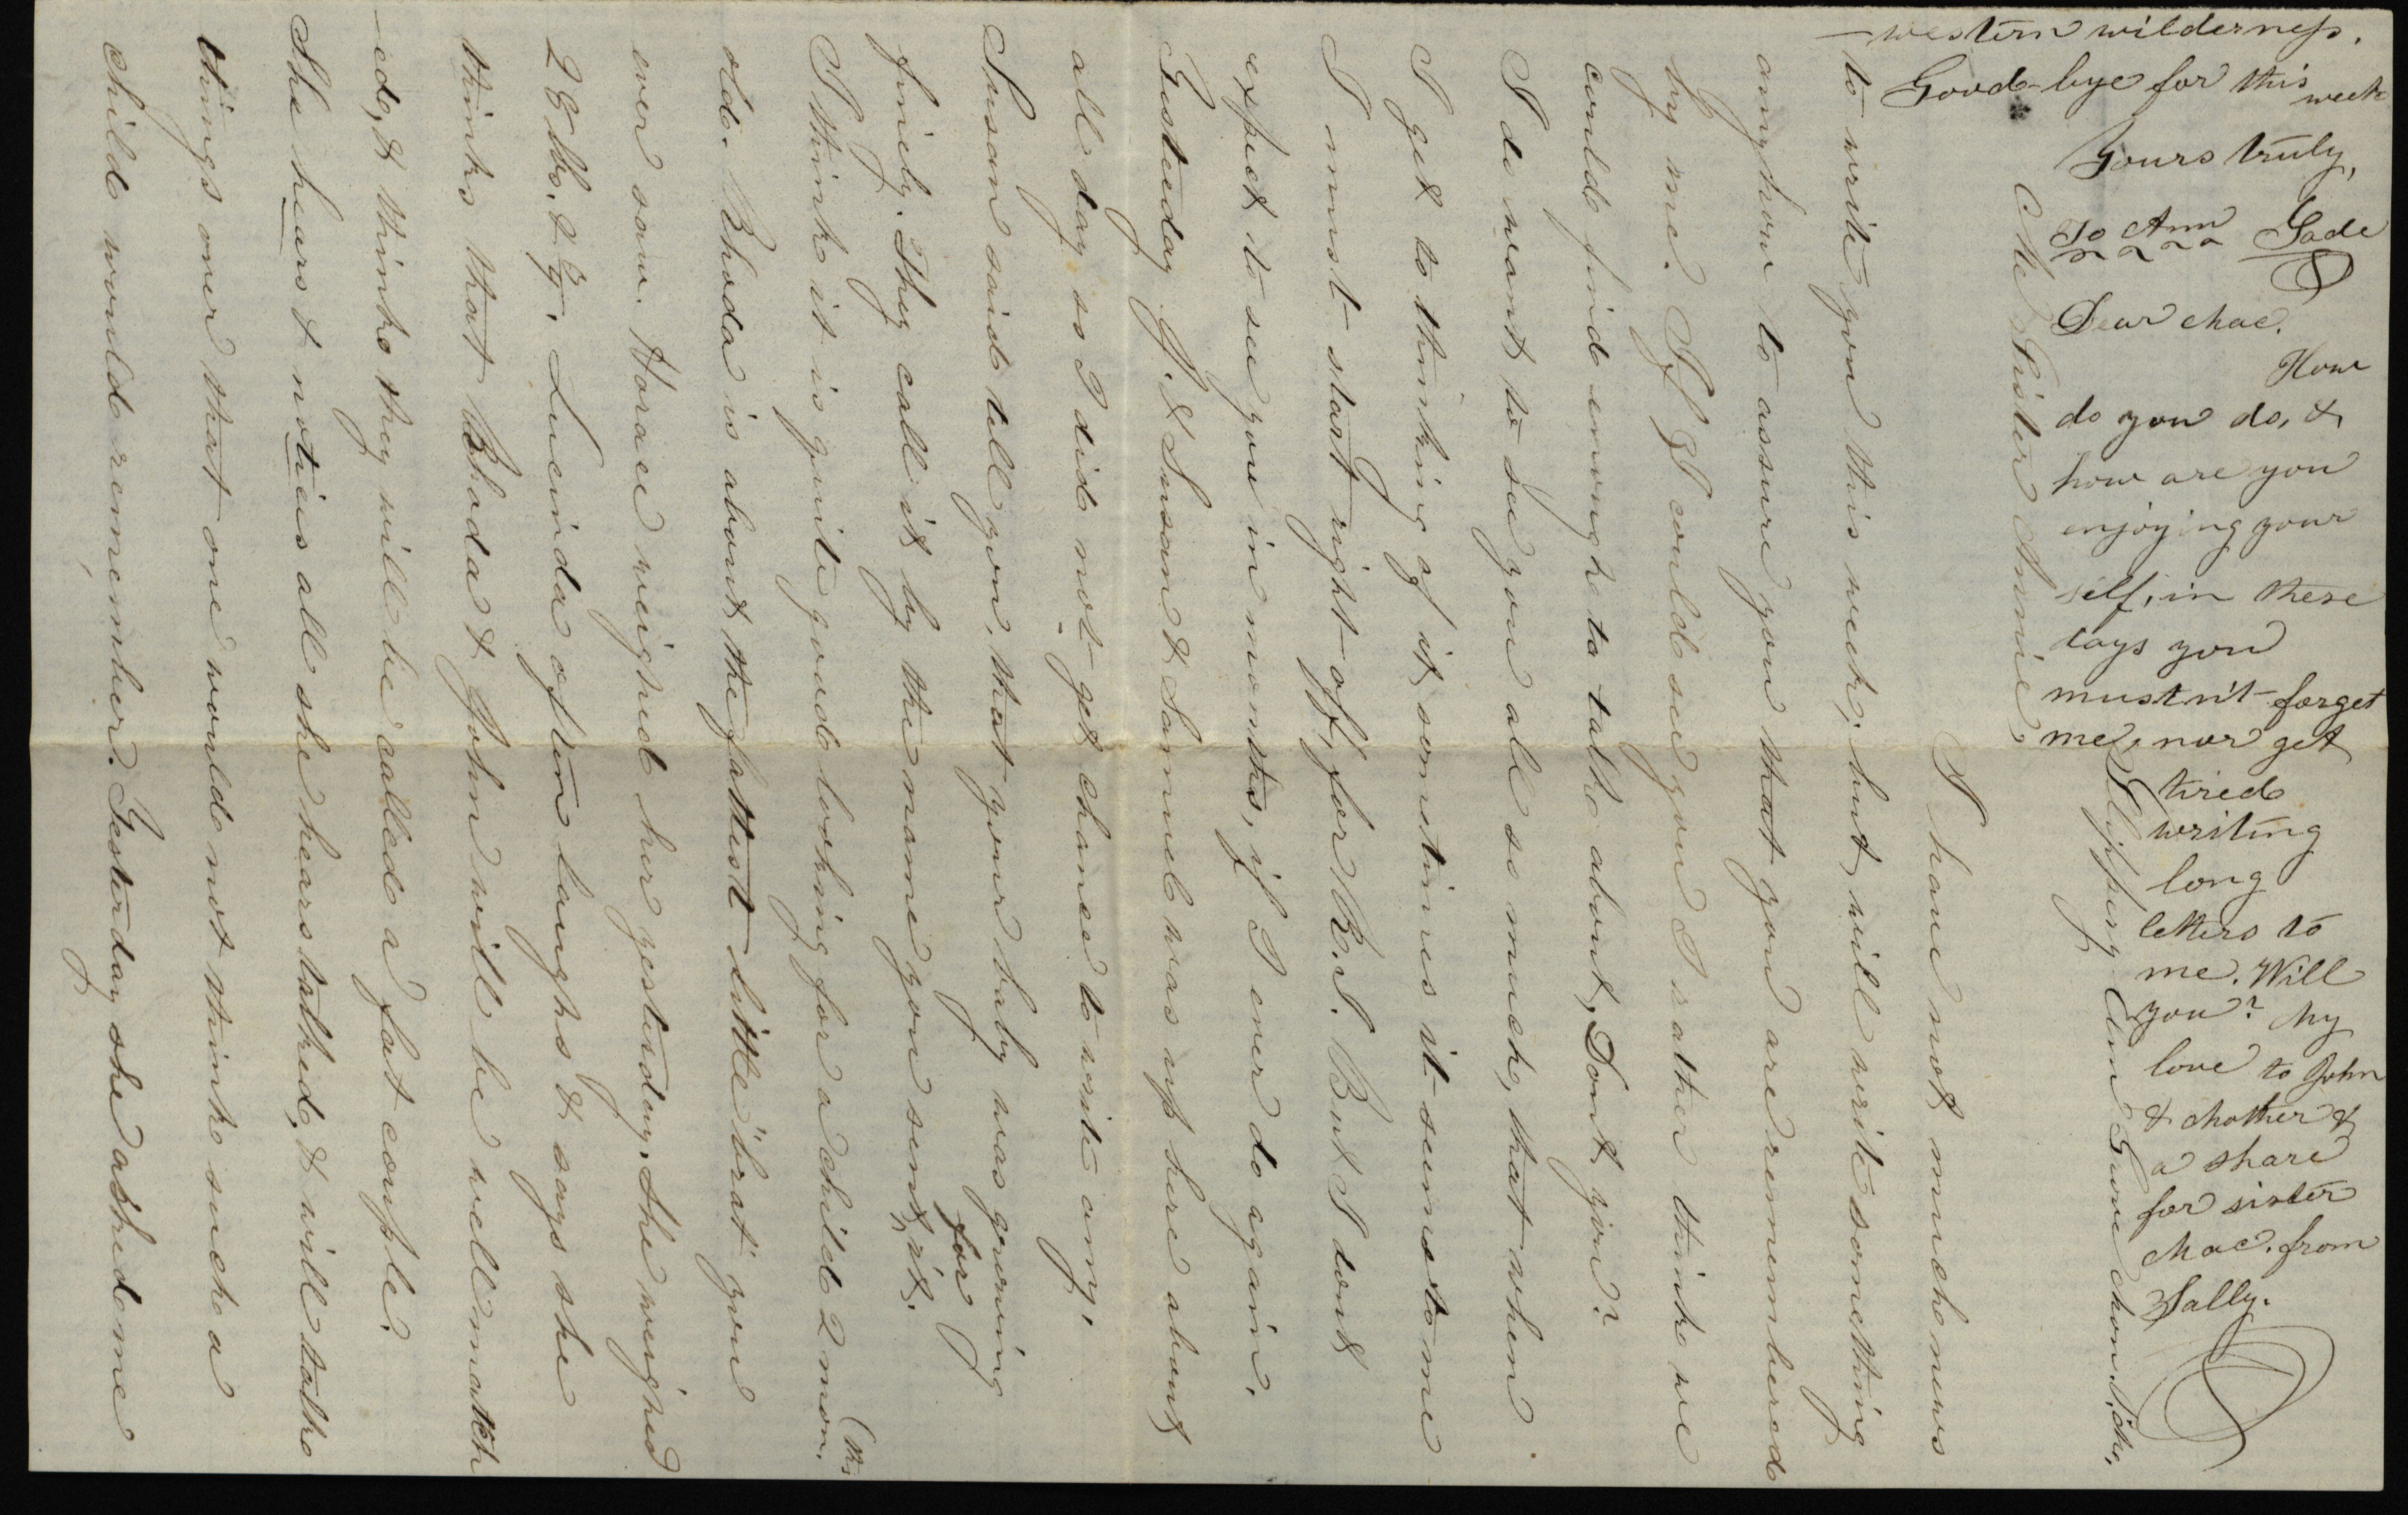 Slippery Elm Grove Mon. Mch.
My Sister Annie,
I have not much news
to write you this week; but will write something
anyhow to assure you that you are remembered
by me. If I could see you I rather think we
could find enough to talk about, Dont you?
I do want to see you all so much, that when
I get to thinking of it, sometimes it seems to me
I must start right off, for R.I. But I dont
expect to see you in months, if I ever do again.
Yesterday J. & Susan & Samuel was up here about
all day so I did not get chance to write any;
Susan said tell you, that your baby was growing
finely. They call it by the name you sent for it.
I think it is quite good looking for a child 2 mon.
old. Rhoda is about the fattest little "brat" you (ths
ever saw. Horace weighed her yesterday. She weighed
28 lbs. & 3/4. Lucinda often laughs & says she
thinks that Rhoda & John will be well match
-ed, & thinks they will be called a fat couple.
She hears & notices all she hears talked, & will talk
things over that one would not think such a
child would remember. Yesterday she asked me
western wilderness.
Good-bye for this week
Yours truly,
To Ann Sade
Dear Mac.
How
do you do, &
how are you
enjoying your
self, in these
days you
mustn't forget
me, nor get
tired
writing
long
letters to
me. Will
you? My
love to John
& Mother &
a share
for sister
Mac. from
Sally.